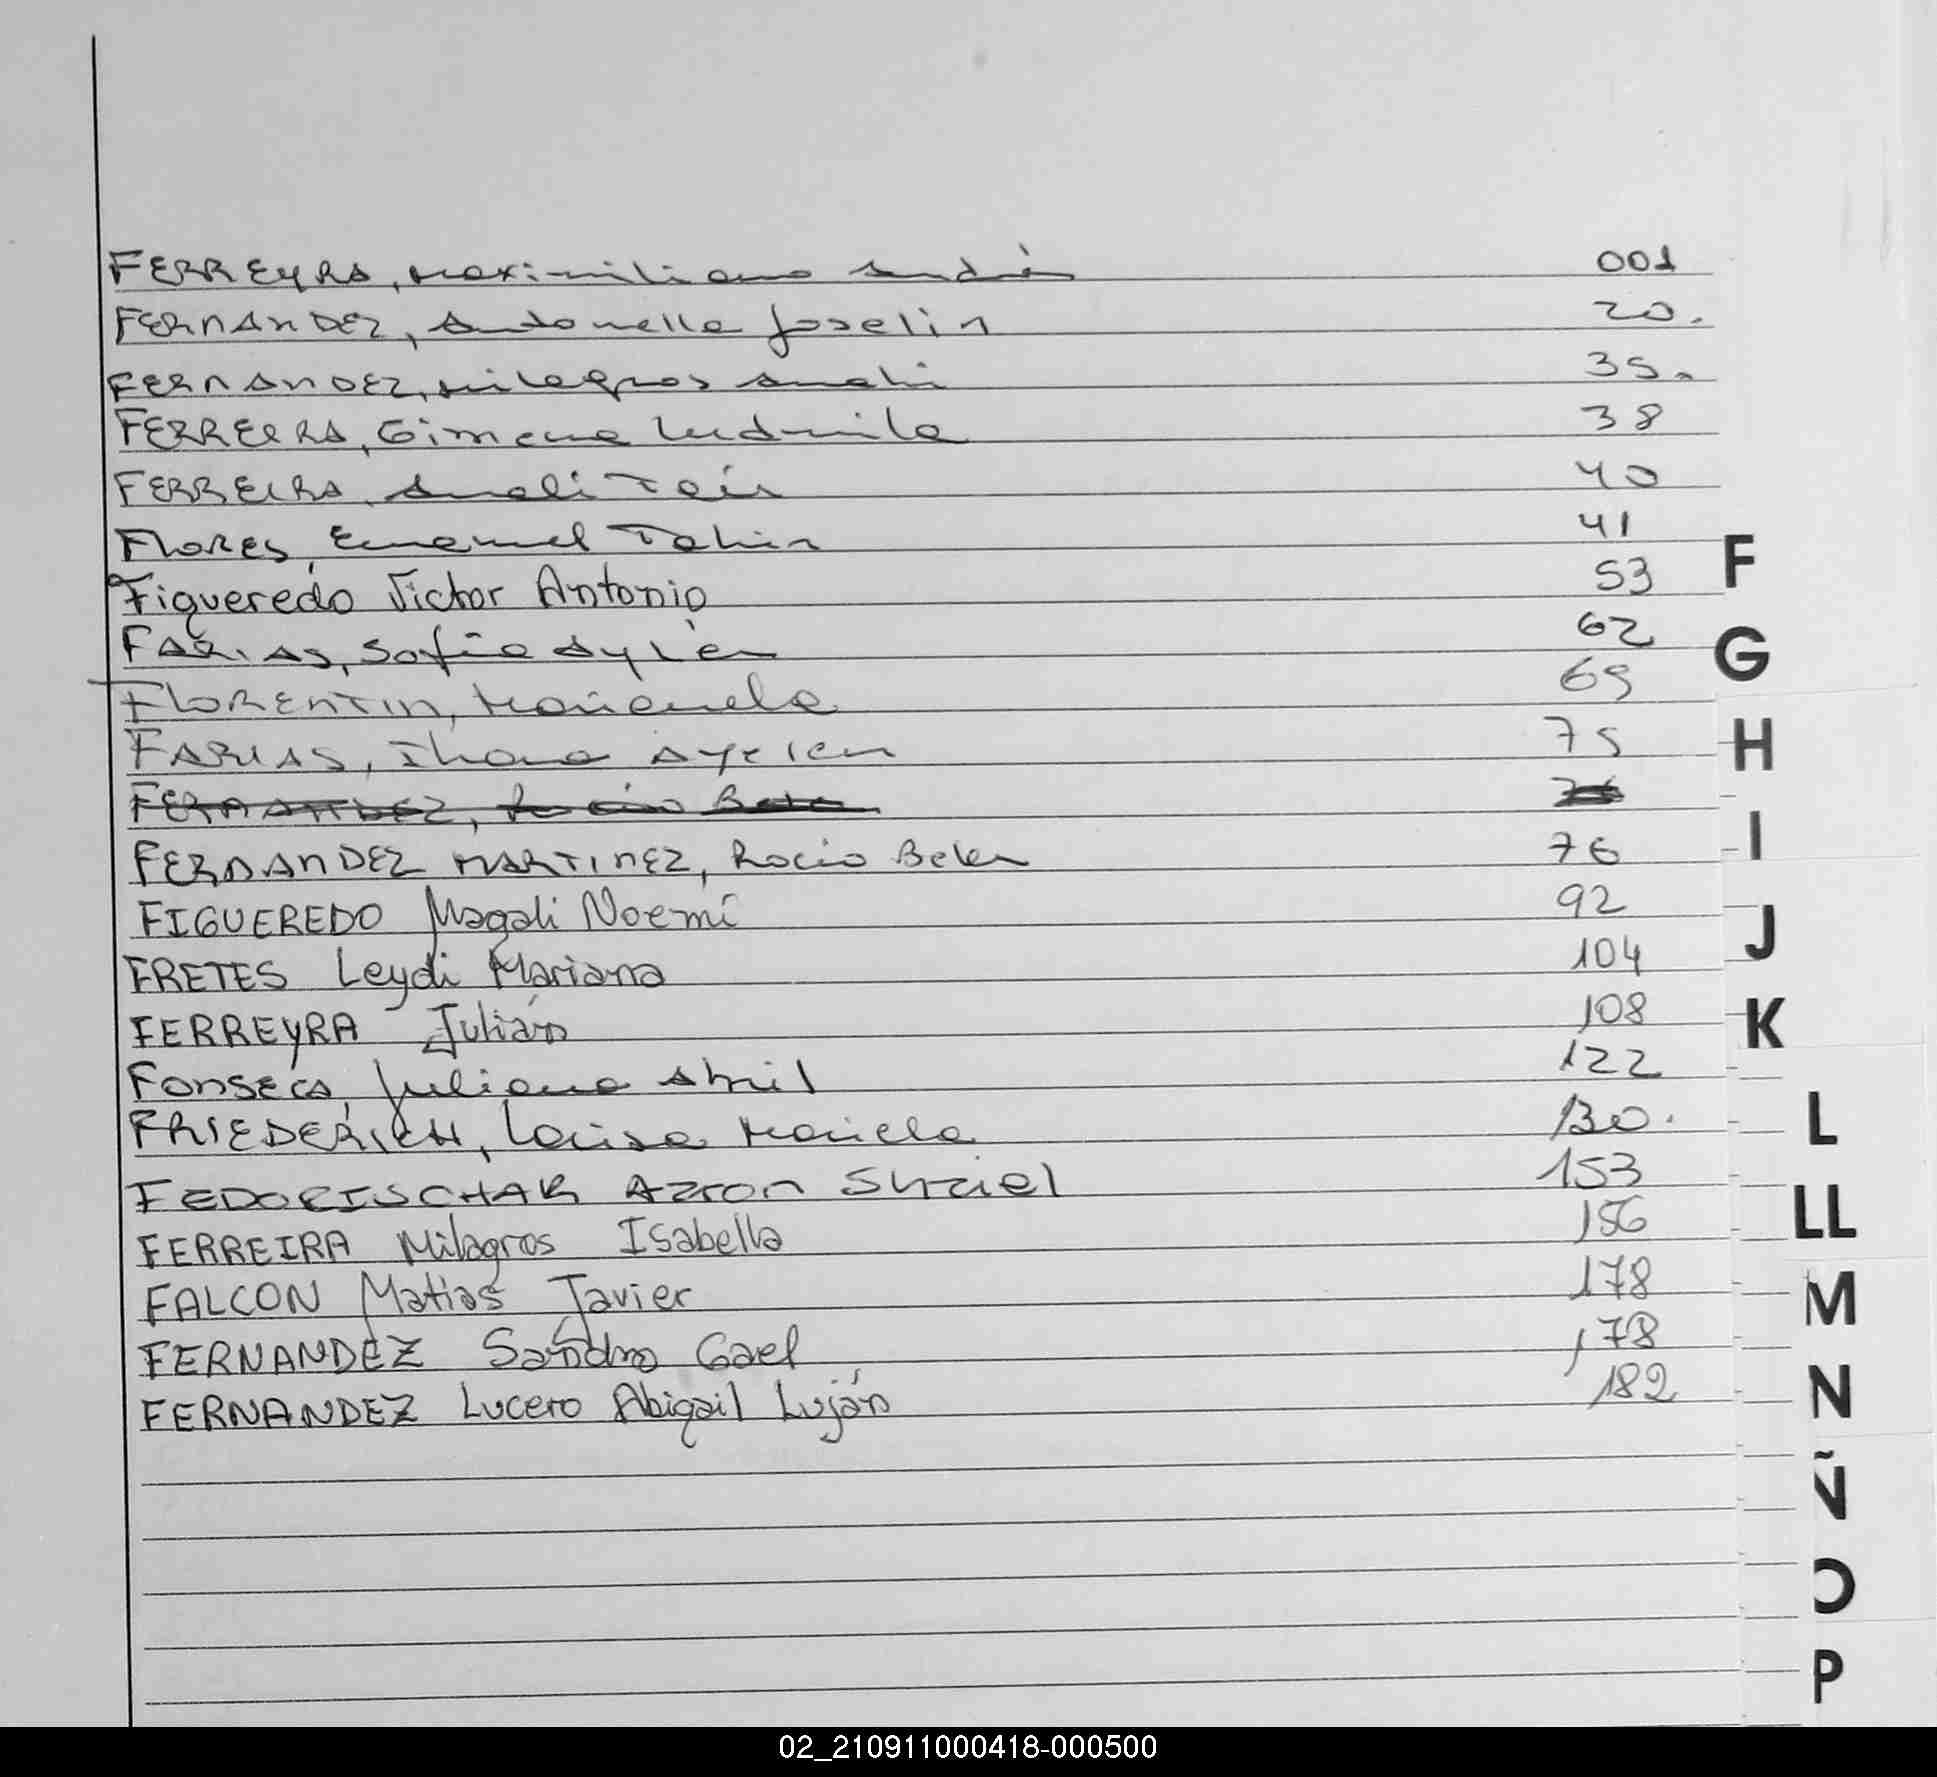 FERREYRA, Maximiliano Andrés 001
FERNANDEZ, Antonella Joselin 20.
FERNANDEZ, Milagros Anahi 35.
FERREIRA, Gimena Ludmila 38
FERREIRA, Anali Tais 40
Flores, Emanuel Tahir 41
Figueredo Victor Antonio 53
FARIAS, Sofia Aylén 62
FLORENTIN, Marianela 69
FARIAS, Ihana Ayelen 75
FERNANDEZ, Rocio Belen 76
FERNANDEZ MARTINEZ, Rocio Belen 76
FIGUEREDO Magali Noemí 92
FRETES Leydi Mariana 104
FERREYRA Julián 108
Fonseca, Juliana Abril 122
FRIEDERICH, Louisa Mariela 130.
FEDORISCHAK Azron Shziel 153
FERREIRA Milagros Isabella 156
FALCON Matias Javier 178
FERNANDEZ Sandro Gael 178
FERNANDEZ Lucero Abigail Luján 182
F
G
H
I
J
K
L
LL
M
N
Ñ
O
P
02_210911000418-000500